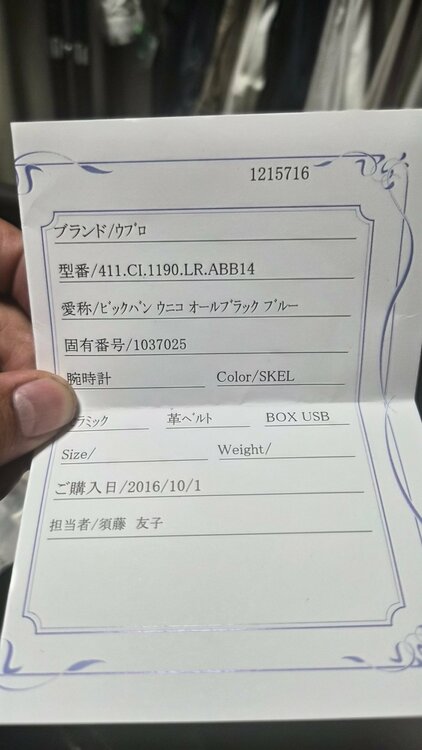 1215716
ブランド/ウブロ
型番/411.CI.1190.LR.ABB14
愛称/ビックバン ウニコ オールブラック ブルー
固有番号/1037025
腕時計 Color/SKEL
ラミック 革ベルト BOX USB
Size/ Weight/
ご購入日/2016/10/1
担当者/須藤 友子